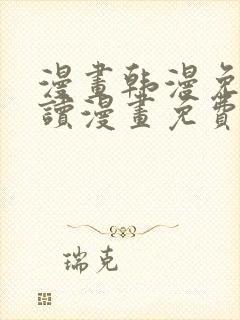 漫畫韩漫免
讀漫畫免費
瑞克